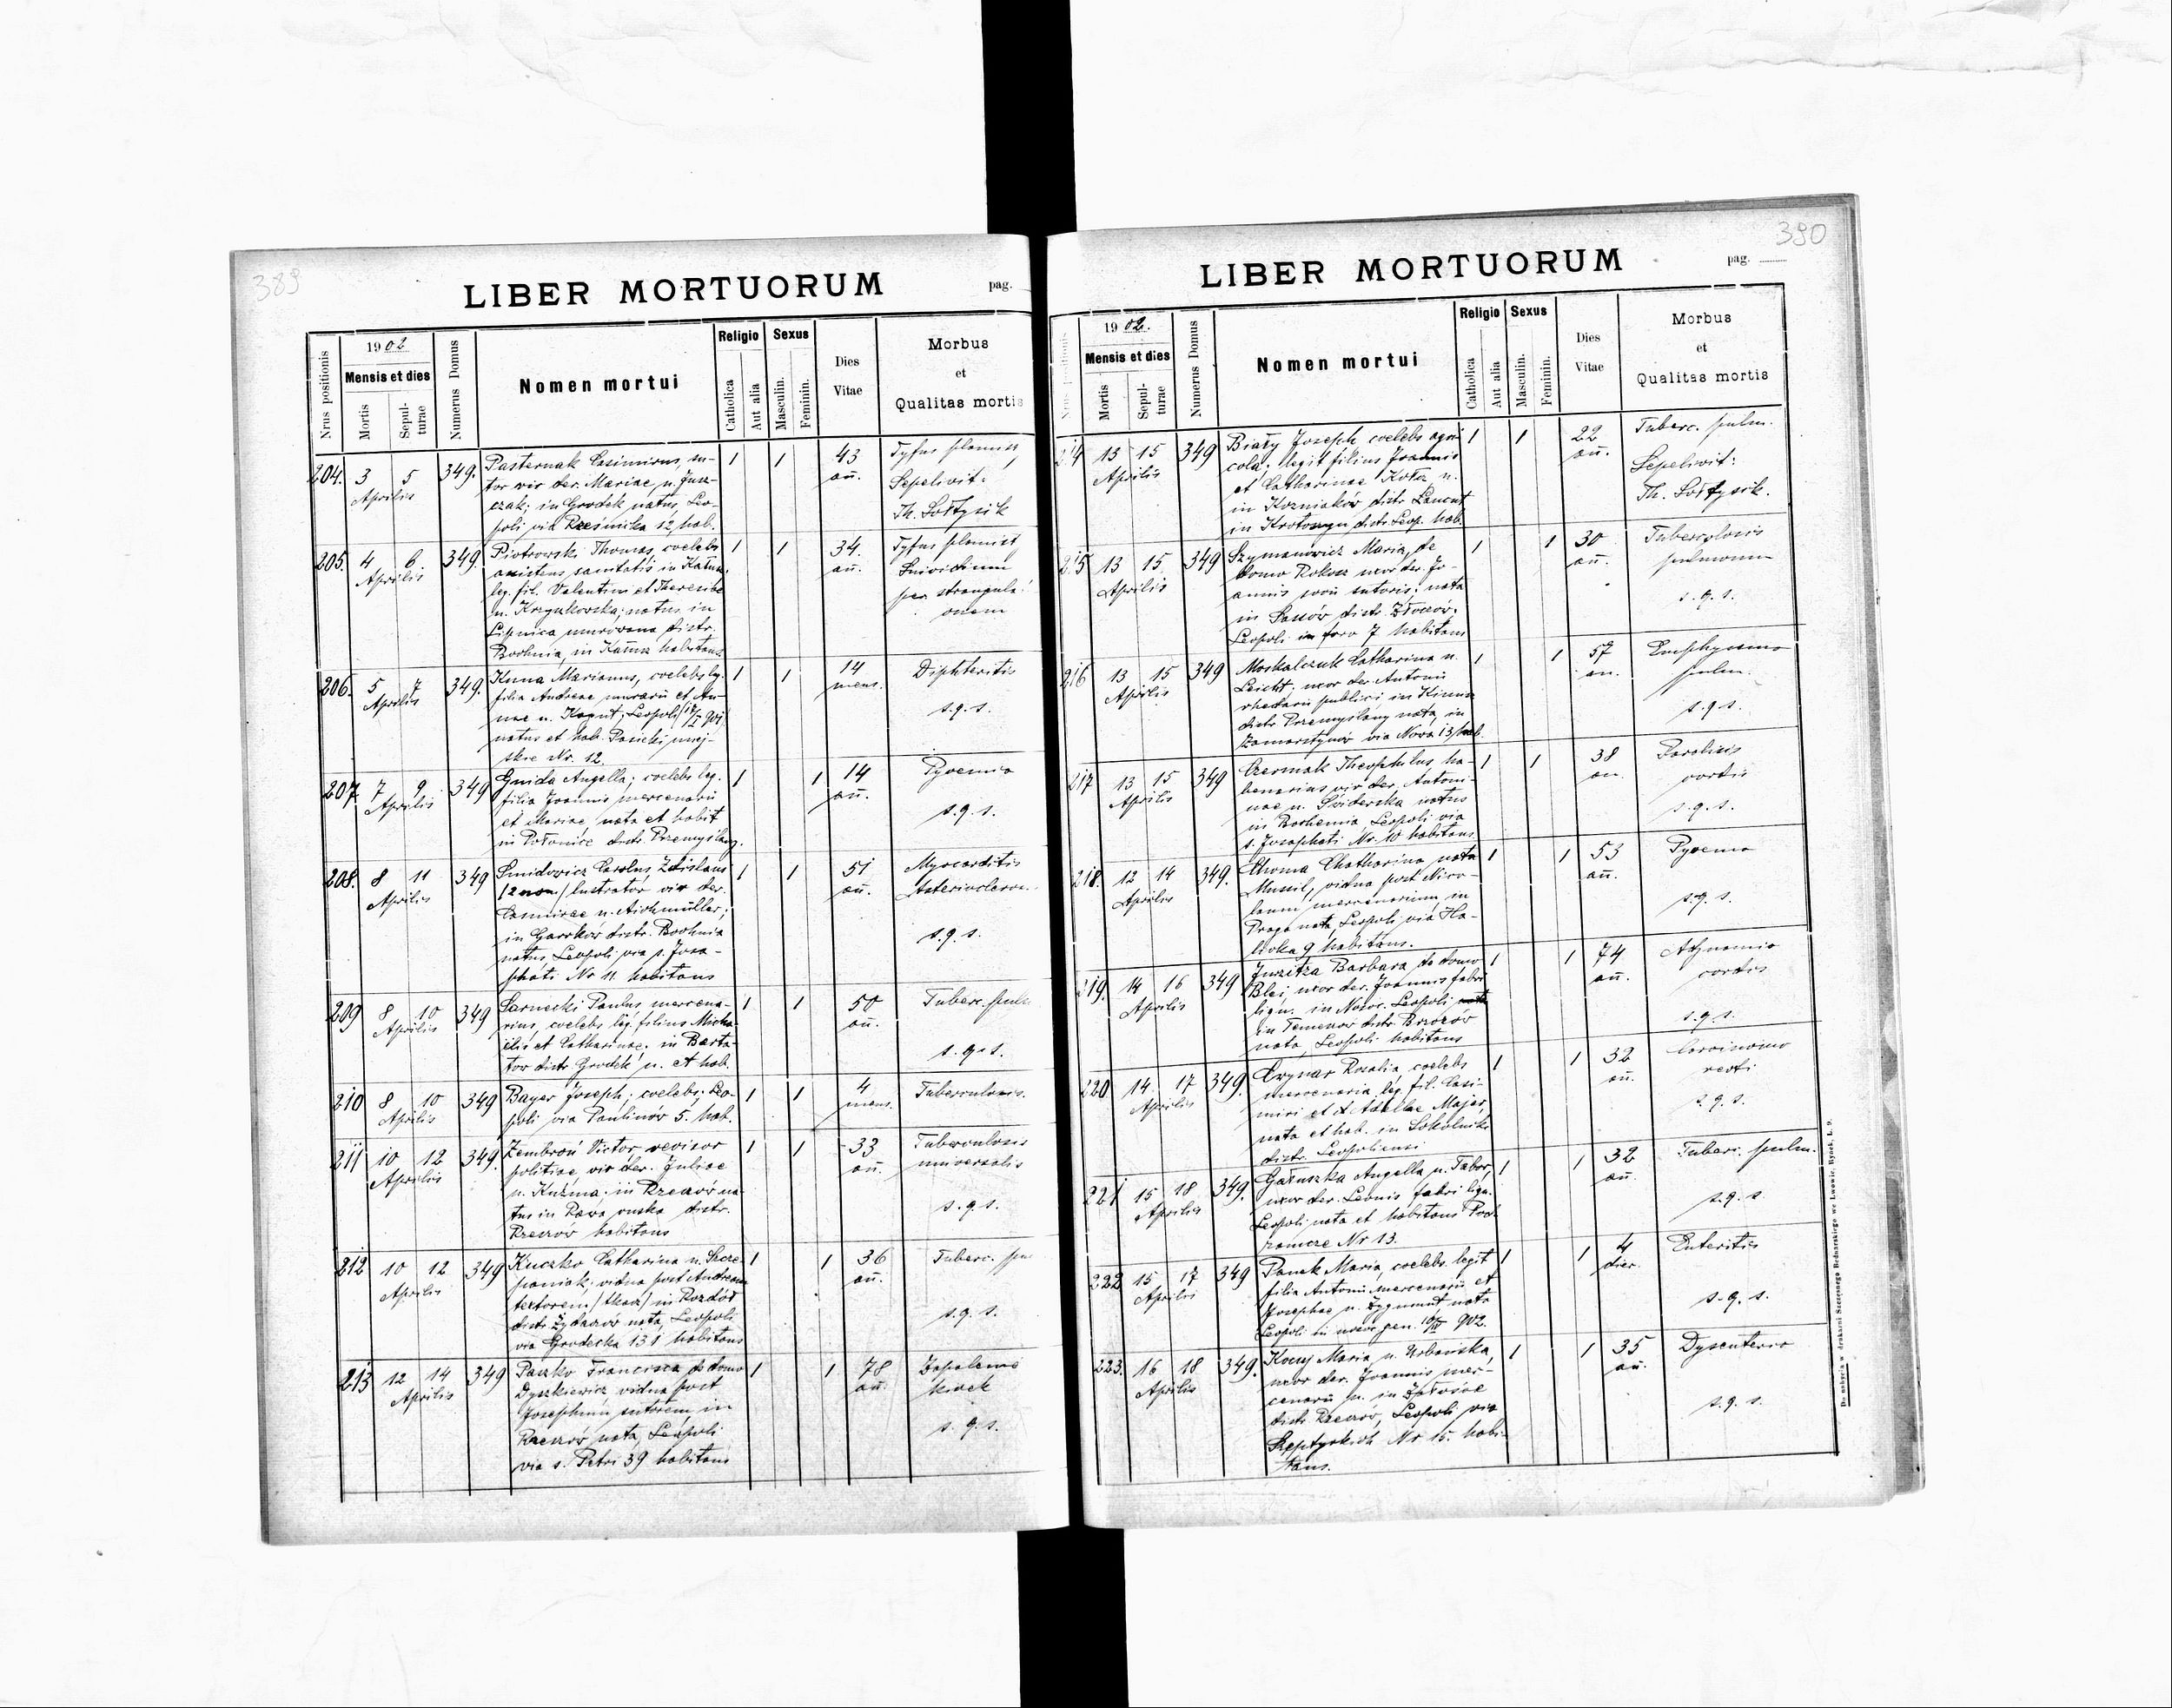 389
LIBER MORTUORUM
pag.
Nrus positionis
1902
Mensis et dies
Mortis
Sepulturae
Numerus Domus
Nomen mortui
Religio
Catholica
Aut alia
Sexus
Masculin.
Feminin.
Dies
Vitae
Morbus
et
Qualitas mortis
204. 3 5 Aprilis 349. Pasternak Casimirus, su- 1 1 43 an̄.
tor vir der. Mariae n. Jusz-
czak; in Grodek natus, Leo-
poli via Rzeźnicka 12 hab.
Sepelivit:
Th. Sołtysik
205. 4 6 Aprilis 349. Piotrowski Thomas, coelebs 1 1 34. an̄.
leg. fil. Valentini et Theresiae
natus in
Lipnica murowana distr.
Bochnia, in habitans
206. 5 7 Aprilis 349. Kuna Marianus, coelebs leg. 1 1 14 mens. Diphteritis
filia Andreae murarii et An-
nae n. Kogut; Leopoli
natus et hab. Pasieki miej-
skie Nr. 12.
s.q.s.
207. 7 9 Aprilis 349 Gnida Angella; coelebs leg. 1 1 14 an̄. Pyoemia
filia Joannis mercenarii
et Mariae nata et habit
in Połonice distr. Przemyślany.
s.q.s.
208. 8 11 Aprilis 349 Smidowicz Carolus Zdislaus 1 1 51 an̄. Myocarditis
lustrator vir der.
Casimirae n. Aichmüller;
in distr. Bochnia
natus, Leopoli via s. Josa-
phati Nr 11 habitans
s.q.s.
209 8 10 Aprilis 349 Sarnecki Paulus mercena- 1 1 50 an̄. Tuberc. pulm
rius, coelebs leg. filius Micha-
elis et Catharinae. in Barta-
tow distr. Grodek n. et hab.
s.q.s.
210 8 10 Aprilis 349 Bayer Joseph; coelebs; Leo- 1 1 4 mens. Tuberculosis.
poli via Paulinów 5. hab.
211 10 12 Aprilis 349. Zembroń Victor, revisor 1 1 33 an̄. Tuberculosis
politiae vir der. Juliae universalis
n. Kuźma in Rzeszów na-
tus in Rawa ruska distr.
Rzeszów habitans
s.q.s.
212 10 12 Aprilis 349 Kuczko Catharina n. Szcze- 1 1 36 an̄. Tuberc. pu
paniak; vidua post Andream
textorem/tkacz/ in Rozdół
distr. Żydaczów nata, Leopoli
via Grodecka 131 habitans
s.q.s.
213 12 14 Aprilis 349 Paszko Francisca de domo 1 1 78 an̄. Zapalenie
Dyszkiewicz vidua post kiszek
Josephum sutorem in
Rzeszów nata, Leopoli
via s. Petri 39 habitans
s.q.s.
390
LIBER MORTUORUM
pag.
1902.
Mensis et dies
Mortis
Sepulturae
Numerus Domus
Nomen mortui
Religio
Catholica
Aut alia
Sexus
Masculin.
Feminin.
Dies
Vitae
Morbus
et
Qualitas mortis
214 13 15 Aprilis 349 Biały Joseph coelebs agri- 1 1 22 an̄. Tuberc. pulm.
cola; legit filius Joannis
et Catharinae n.
in distr. Łancut
distr. Leop. hab.
Sepelivit:
Th. Sołtysik.
215 13 15 Aprilis 349 Szymanowicz Maria, de 1 1 30 an̄. Tuberculosis
domo Rokosz uxor der. Jo- pulmonum
annis sutoris; nata
in Sassów distr. Złoczów.
Leopoli in foro 7 habitans
s.q.s.
216 13 15 Aprilis 349 Moskalczuk Catharina n. 1 1 57 an. Emphysema
Leicht; uxor der. Antonii pulm.
rhedarii publici; in
distr. Przemyślany nata, in
Zamarstynów via Nova 13/hab.
s.q.s.
217 13 15 Aprilis 349 Czermak Theophilus, ha- 1 1 38 an. Paralisis
benarius vir der. Antoni- cordis
nae n. Świderska natus
in Bochemia Leopoli via
s. Josaphati Nr. 10 habitans
s.q.s.
218. 12 14 Aprilis 349. Chroma Chatharina nata 1 1 53 an̄. Pyoemia
Musil, vidua post
mercenarium, in
Praga nata, Leopoli via Ha-
licka 9 habitans.
s.q.s.
219. 14 16 Aprilis 349 Jurzitza Barbara de domo 1 1 74 an̄. Adynamia
Blei, uxor der. Joannis fabri cordis
lign. in Leopoli
in distr. Brzozów
nata, Leopoli habitans
s.q.s.
220 14 17 Aprilis 349. Cwynar Rosalia, coelebs 1 1 32 an̄. Carcinoma
mercenaria, leg. fil. Casi- recti
miri et Adellae Majer,
nata et hab. in Sokolniki
distr. Leopoliensi
s.q.s.
221 15 18 Aprilis 349. Gałuszka Angella n. Tabor, 1 1 32 an̄. Tuberc. pulm.
uxor der. Leonis fabri lign.
Leopoli nata et habitans Pod-
zamcze Nr 13.
s.q.s.
222 15 17 Aprilis 349 Panek Maria, coelebs legit 1 1 4 dier. Enteritis
filia Antonii mercenarii et
Josephae n. Zygmunt nata
Leopoli in 902.
s.q.s.
223. 16 18 Aprilis 349. Maria n. Urbańska, 1 1 35 an̄. Dysenteria
uxor der. Joannis mer-
cenarii n. in
distr. Rzeszów, Leopoli via
Szeptyckich Nr 15. habi-
tans.
s.q.s.
Do nabycia w drukarni Szczęsnego Bednarskiego we Lwowie, Rynek, L. 9.